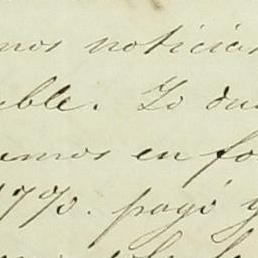 mos noticias
ible. Lo du
emos en fo
17%. pagó y